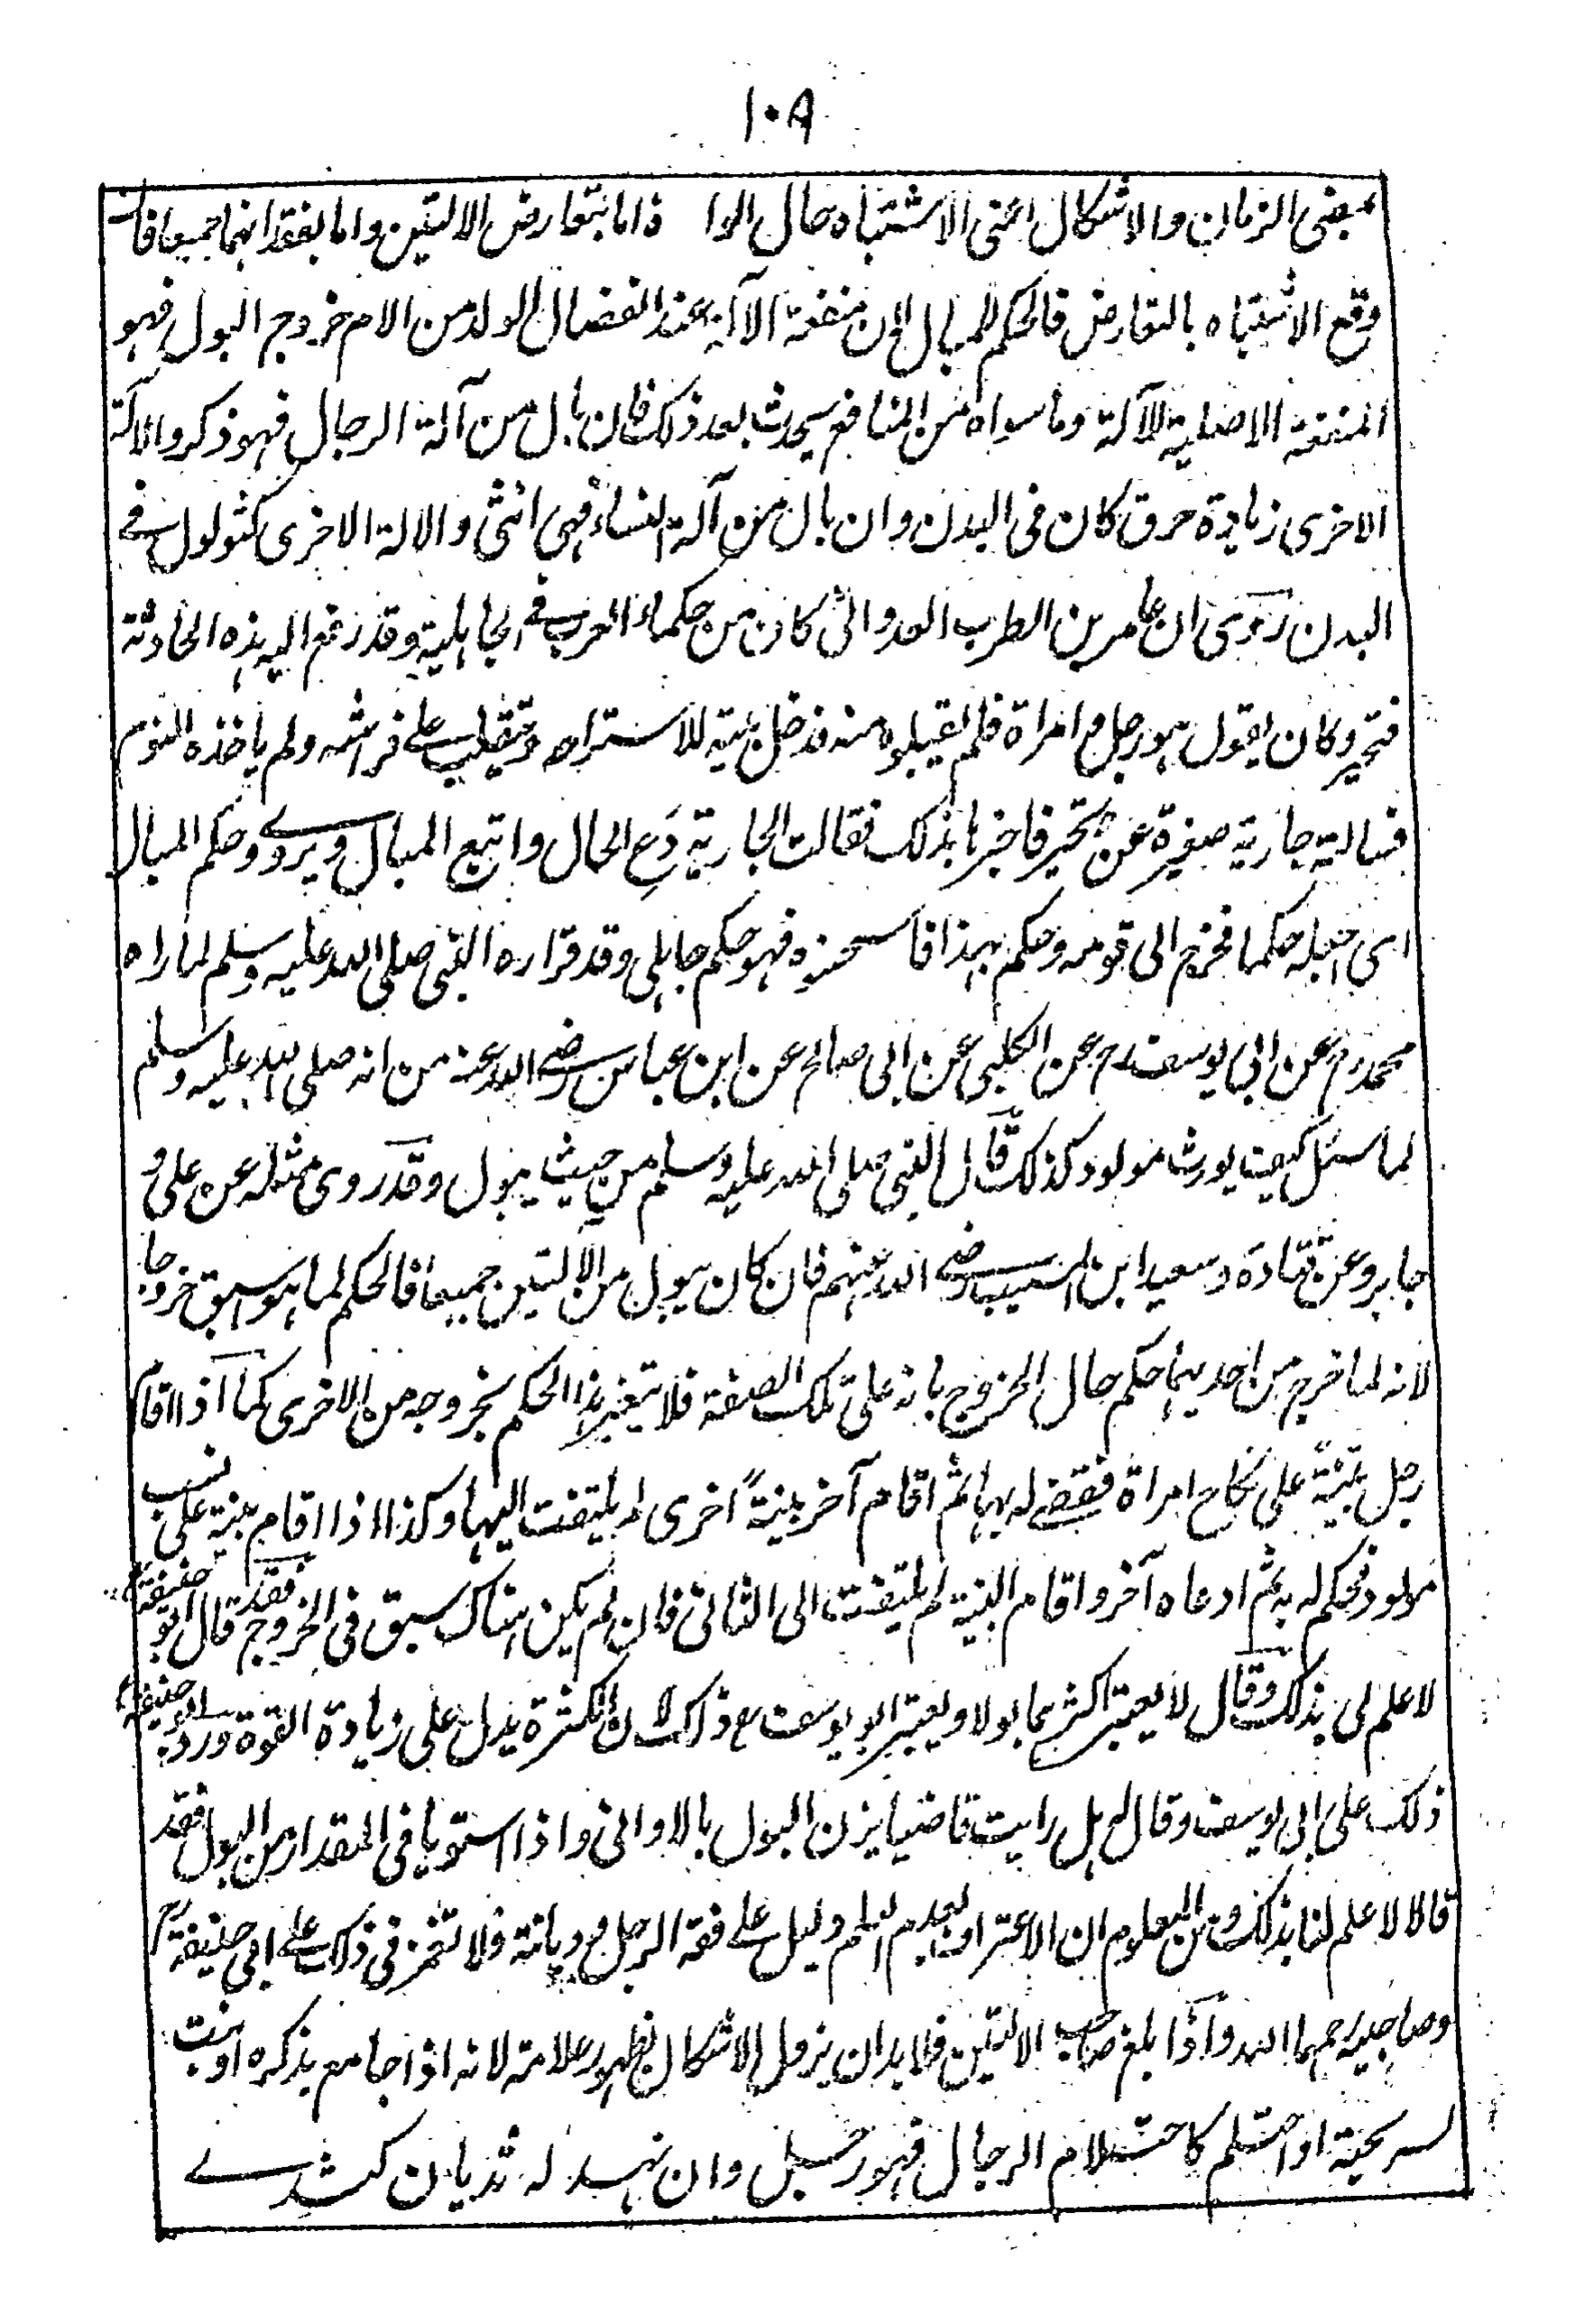 ١٠٨
بمضى الزمان والاشكال اعنى الاشتباه حال الوا   ة اما بتعارض الالتين واما بفقدانهما جميعا فان
وقع الاشتباه بالتعارض فالحكم للمبال لان منفعة الآلة عند انفصال الولد من الام خروج البول فهو
المنفعة الاصلية للآلة وما سواه من المنافع يحدث بعد ذلك فان بال من آلة الرجال فهو ذكر والآلة
الاخرى زيادة خرق كان فى البدن وان بال من آلة النساء فهى انثى والالة الاخرى كثولول فے
البدن روى ان عامر بن الظرب العدوانى كان من حكماء العرب فے الجاهلية وقد رفع اليه هذه الحادثة
فتحير وكان يقول هو رجل و امراة فلم يقبلوه منه فدخل بيته للاستراحة ويتقلب علے فراشه ولم ياخذه النوم
فسالته جارية صغيرة عن تحيره فاخبرها بذلك فقالت الجارية دَعِ الحال واتبع المبال ويروے وحكم المبال
اى اجعله حكما فخرج الى قومه وحكم بهذا فاستحسنوه فهو حكم جاهلى وقد قراره النبى صلى الله عليه وسلم لما راه
محمد رح عن ابى يوسف رح عن الكلبى عن ابى صالح عن ابن عباس رضے الله عنه من انه صلى الله عليه وسلم
لما سئل كيف يورث مولود كذلك قال النبى صلى الله عليه وسلم من حيث يبول وقد روى مثله عن على و
جابر وعن قتادة وسعيد ابن المسيب رضے الله عنهم فان كان يبول من الآلتين جميعا فالحكم لما هو اسبق خروجا
لانه لما خرج من احديهما حكم حال الخروج بانه على تلك الصفة فلا يتغير هذا الحكم بخروجه من الاخرى كما اذا اقام
رجل بينةً على نكاح امراة فقضے له بها ثم اقام آخر بينةً اخرى لم يلتفت اليها وكذا اذا اقام بينة على نسب
مولود فحكم له به ثم ادعاه آخر واقام البينة لم يلتفت الى الثانى فان لم يكن هناك سبق فى الخروج فقد قال ابو حنيفة رح
لا علم لى بذلك وقال لا يعتبر اكثرهما بولا ويعتبر ابو يوسف رح ذلك لان الكثرة يدل على زيادة القوة ورد ابو حنيفة رح
ذلك على ابى يوسف وقال هل رايت قاضيا يزن البول بالاوانى واذا استويا فى المقدار من البول فقد
قالا لا علم لنا بذلك ومن المعلوم ان الاعتراف بعدم العلم دليل علے فقه الرجل وديانته ولا تغمز فى ذلك علے ابى حنيفة رح
وصاحبيه رحمهما الله واذا بلغ صاحب الالتين فلابد ان يزول الاشكال بظهور علامة لانه اذا جامع بذكره او نبت
له لحية او احتلم كاحتلام الرجال فهو رجل وان نهد له ثديان كثدے